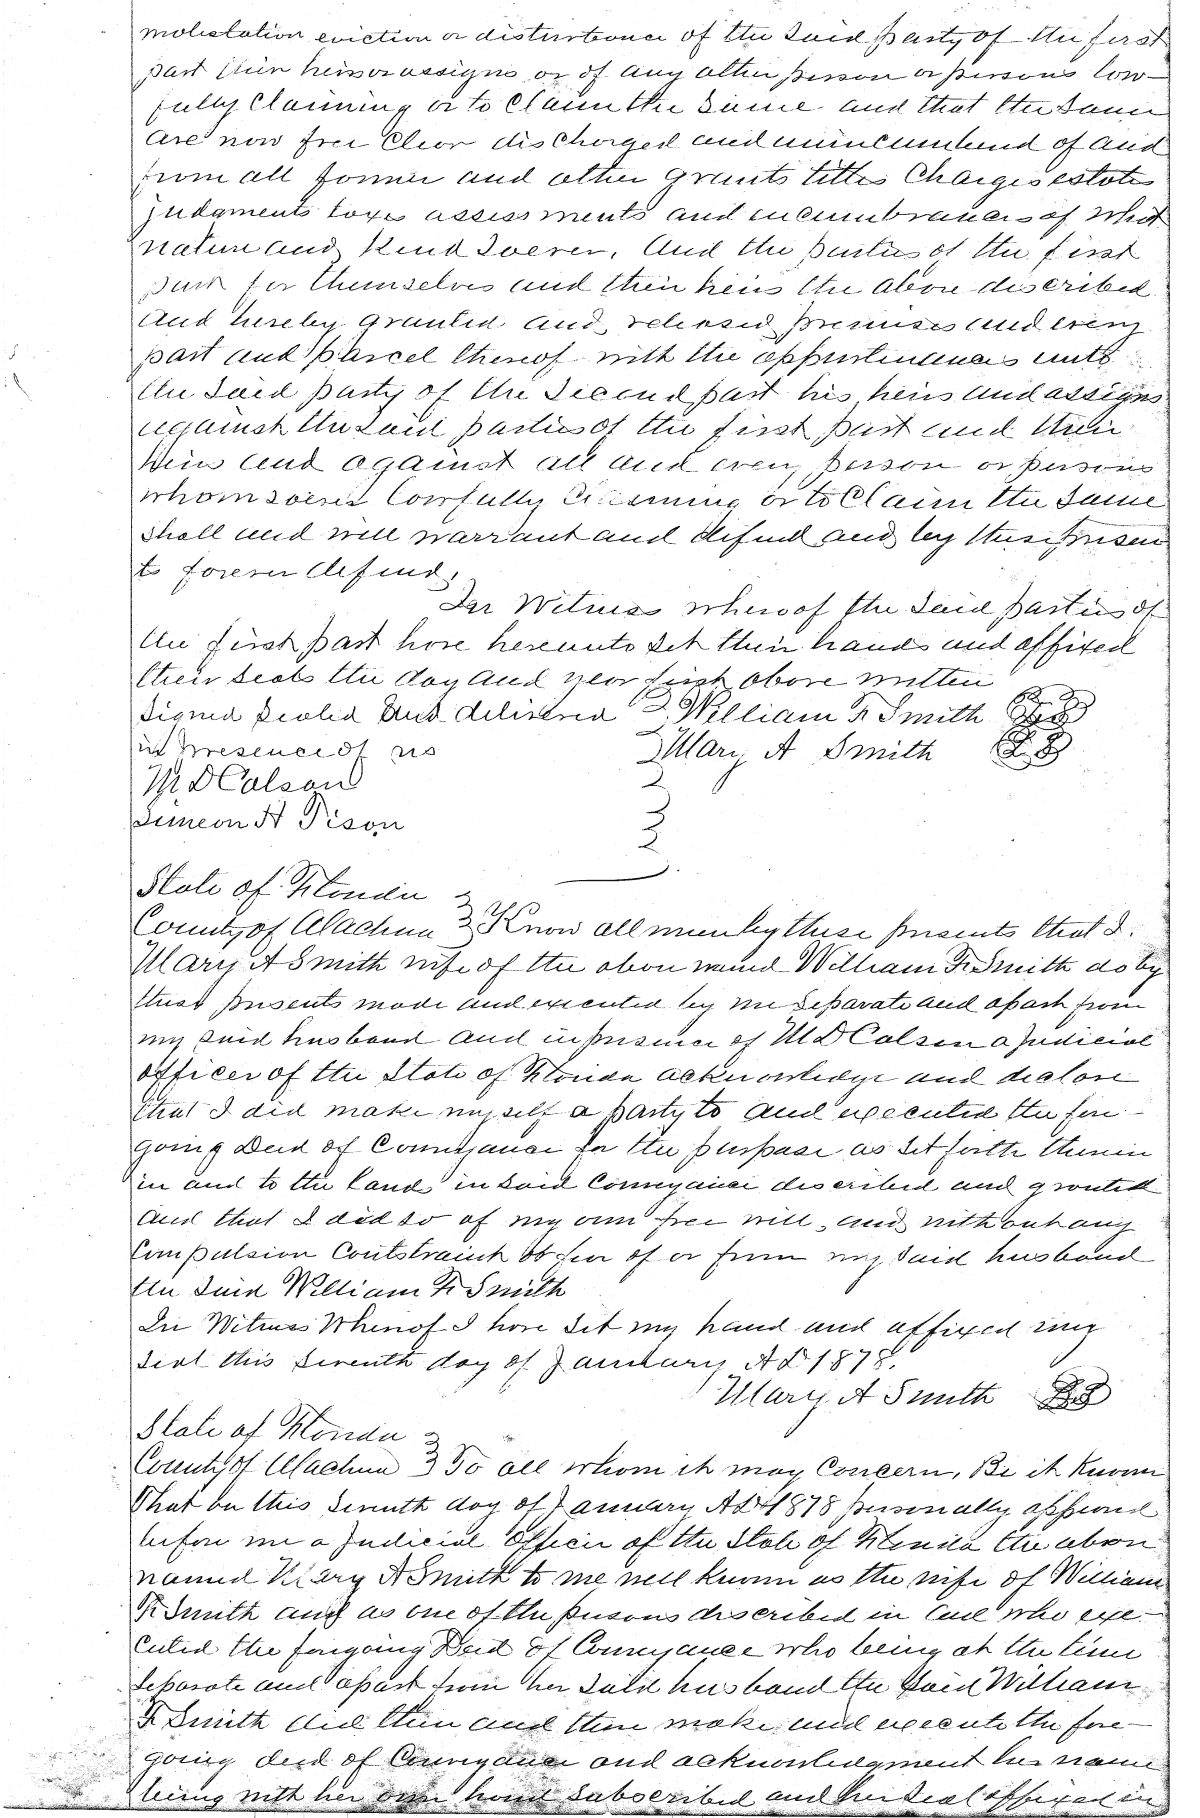 molestation eviction or disturbance of the said party of the first
part their heirs or assigns or of any other person or persons law-
fully Claiming or to Claim the same and that the same
are now free Clear discharged and unincumbered of and
from all former and other grants titles Charges estates
judgments taxes assessments and incumbrances of what
nature and kind soever, And the parties of the first
part for themselves and their heirs the above described
and hereby granted and released premises and every
part and parcel thereof with the appurtenances unto
the said party of the second part his heirs and assigns
against the said parties of the first part and their
heirs and against all and every person or persons
whomsoever lawfully Claiming or to Claim the same
shall and will warrant and defend and by these presen
ts forever defend,
In Witness whereof the said parties of
the first part have hereunto set their hands and affixed
their seals the day and year first above written
Signed sealed and delivered William F. Smith L S
in presence of us Mary A Smith L S
M D Colson
Simeon H Tison
State of Florida
County of Alachua Know all men by these presents that I.
Mary A Smith wife of the above named William F. Smith do by
these presents made and executed by me separate and apart from
my said husband and in presence of M D Colson a Judicial
officer of the State of Florida acknowledge and declare
that I did make myself a party to and executed the fore-
going Deed of Conveyance for the purpose as set forth therein
in and to the lands in said Conveyance described and granted
and that I did so of my own free will, and without any
Compulsion Contstraint or fear of or from my said husband
the said William F. Smith
In Witness Whereof I have set my hand and affixed my
seal this seventh day of January A D 1878.
Mary A Smith L S
State of Florida
County of Alachua To all whom it may Concern, Be it Known
That on this seventh day of January A D 1878 personally appeared
before me a Judicial Officer of the State of Florida the above
named Mary A Smith to me well known as the wife of William
F. Smith and as one of the persons described in and who exe-
cuted the foregoing Deed of Conveyance who being at the time
separate and apart from her said husband the said William
F. Smith did then and there make and execute the fore-
going deed of Conveyance and acknowledgment her name
being with her own hand subscribed and her seal affixed in